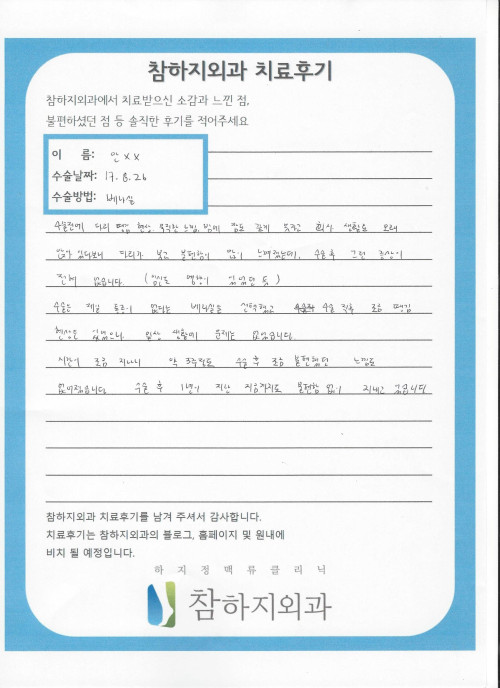 참하지외과 치료후기
참하지외과에서 치료받으신 소감과 느낀 점,
불편하셨던 점 등 솔직한 후기를 적어주세요
이 름: 안××
수술날짜: 17. 8. 26
수술방법: 베나실
수술전에 다리 현상 묵직한 느낌, 밤에 잠도 깊게 못자고 회사 생활을 오래
앉아 있다보니 다리가 붓고 불편함이 많이 느껴졌는데, 수술 후 그런 증상이
전혀 없습니다. (임신도 영향이 있었던 듯)
수술은 제일 통증이 없다는 베나실을 선택했고 수술 직후 조금 땡김
현상은 있었으나 일상 생활에 문제는 없었습니다.
시간이 조금 지나니 약 3주정도 수술 후 조금 불편했던 느낌도
없어졌습니다. 수술 후 1년이 지난 지금까지도 불편함 없이 지내고 있습니다
참하지외과 치료후기를 남겨 주셔서 감사합니다.
치료후기는 참하지외과의 블로그, 홈페이지 및 원내에
비치 될 예정입니다.
하지정맥류클리닉
참하지외과